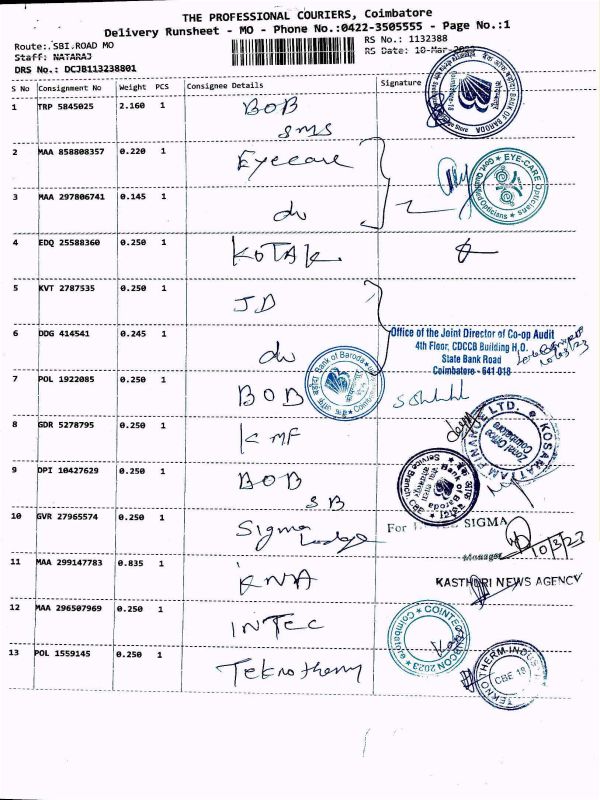 THE PROFESSIONAL COURIERS, Coimbatore
Delivery Runsheet - MO - Phone No.:0422-3505555 - Page No.:1
Route: SBI ROAD MO
RS No.: 1132388
Staff: NATARAJ
RS Date: 10-Mar-2023
DRS No.: DCJB113238801
S No Consignment No Weight PCS Consignee Details Signature
1 TRP 5845025 2.160 1 BOB
SMS
2 MAA 858808357 0.220 1 Eyecare
EYE-CARE
Govt. Qualified Opticians
3 MAA 297806741 0.145 1 do
4 EDQ 25588360 0.250 1 KOTAK
5 KVT 2787535 0.250 1 JD
6 DDG 414541 0.245 1 do
Office of the Joint Director of Co-op Audit
4th Floor, CDCCB Building H.O.
State Bank Road
Coimbatore - 641 018
Bank of Baroda
7 POL 1922085 0.250 1 BOB
8 GDR 5278795 0.250 1 KMF
KOSAMATTAM FINANCE LTD.
Zonal Office
Coimbatore
9 DPI 10427629 0.250 1 BOB
SB
Bank of Baroda
10 GVR 27965574 0.250 1 Sigma
Lodge
SIGMA
Manager
10/3/23
11 MAA 299147783 0.835 1 KNA
KASTHURI NEWS AGENCY
12 MAA 296507969 0.250 1 INTEC
Coimbatore
13 POL 1559145 0.250 1 Teknotherm
CBE 18